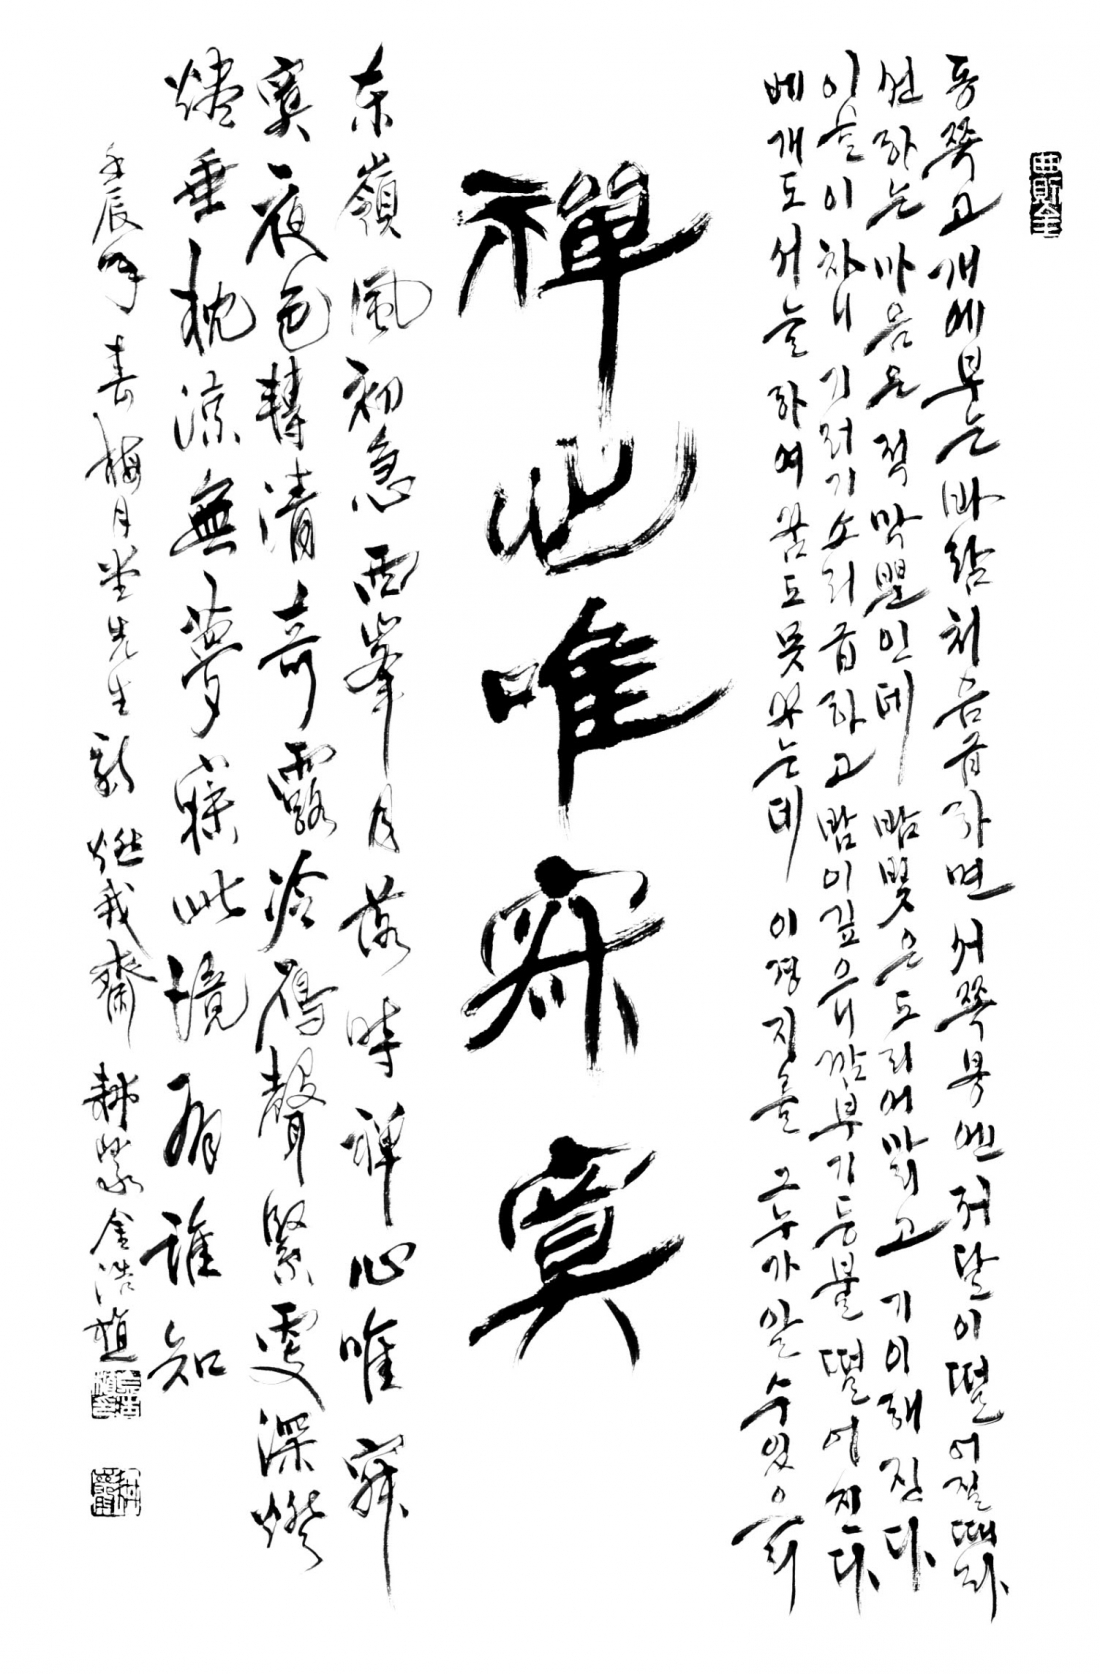 동쪽고개에부는바람처음급하면 서쪽봉엔저달이떨어질때라
선하는마음은적막뿐인데 밤빛은도리어맑고 기이해진다
이슬이차니 기러기소리급하고 밤이깊으니깜부기등불떨어진다
베개도서늘하여꿈도못꾸는데 이경지를 그누가알수있으리
禪心唯寂寞
東嶺風初急西峯月落時禪心唯寂
寞夜色轉清奇露冷鴈聲緊更深燈
燼垂枕涼無夢寐此境有誰知
壬辰年春梅月堂先生 我齋 金浩植